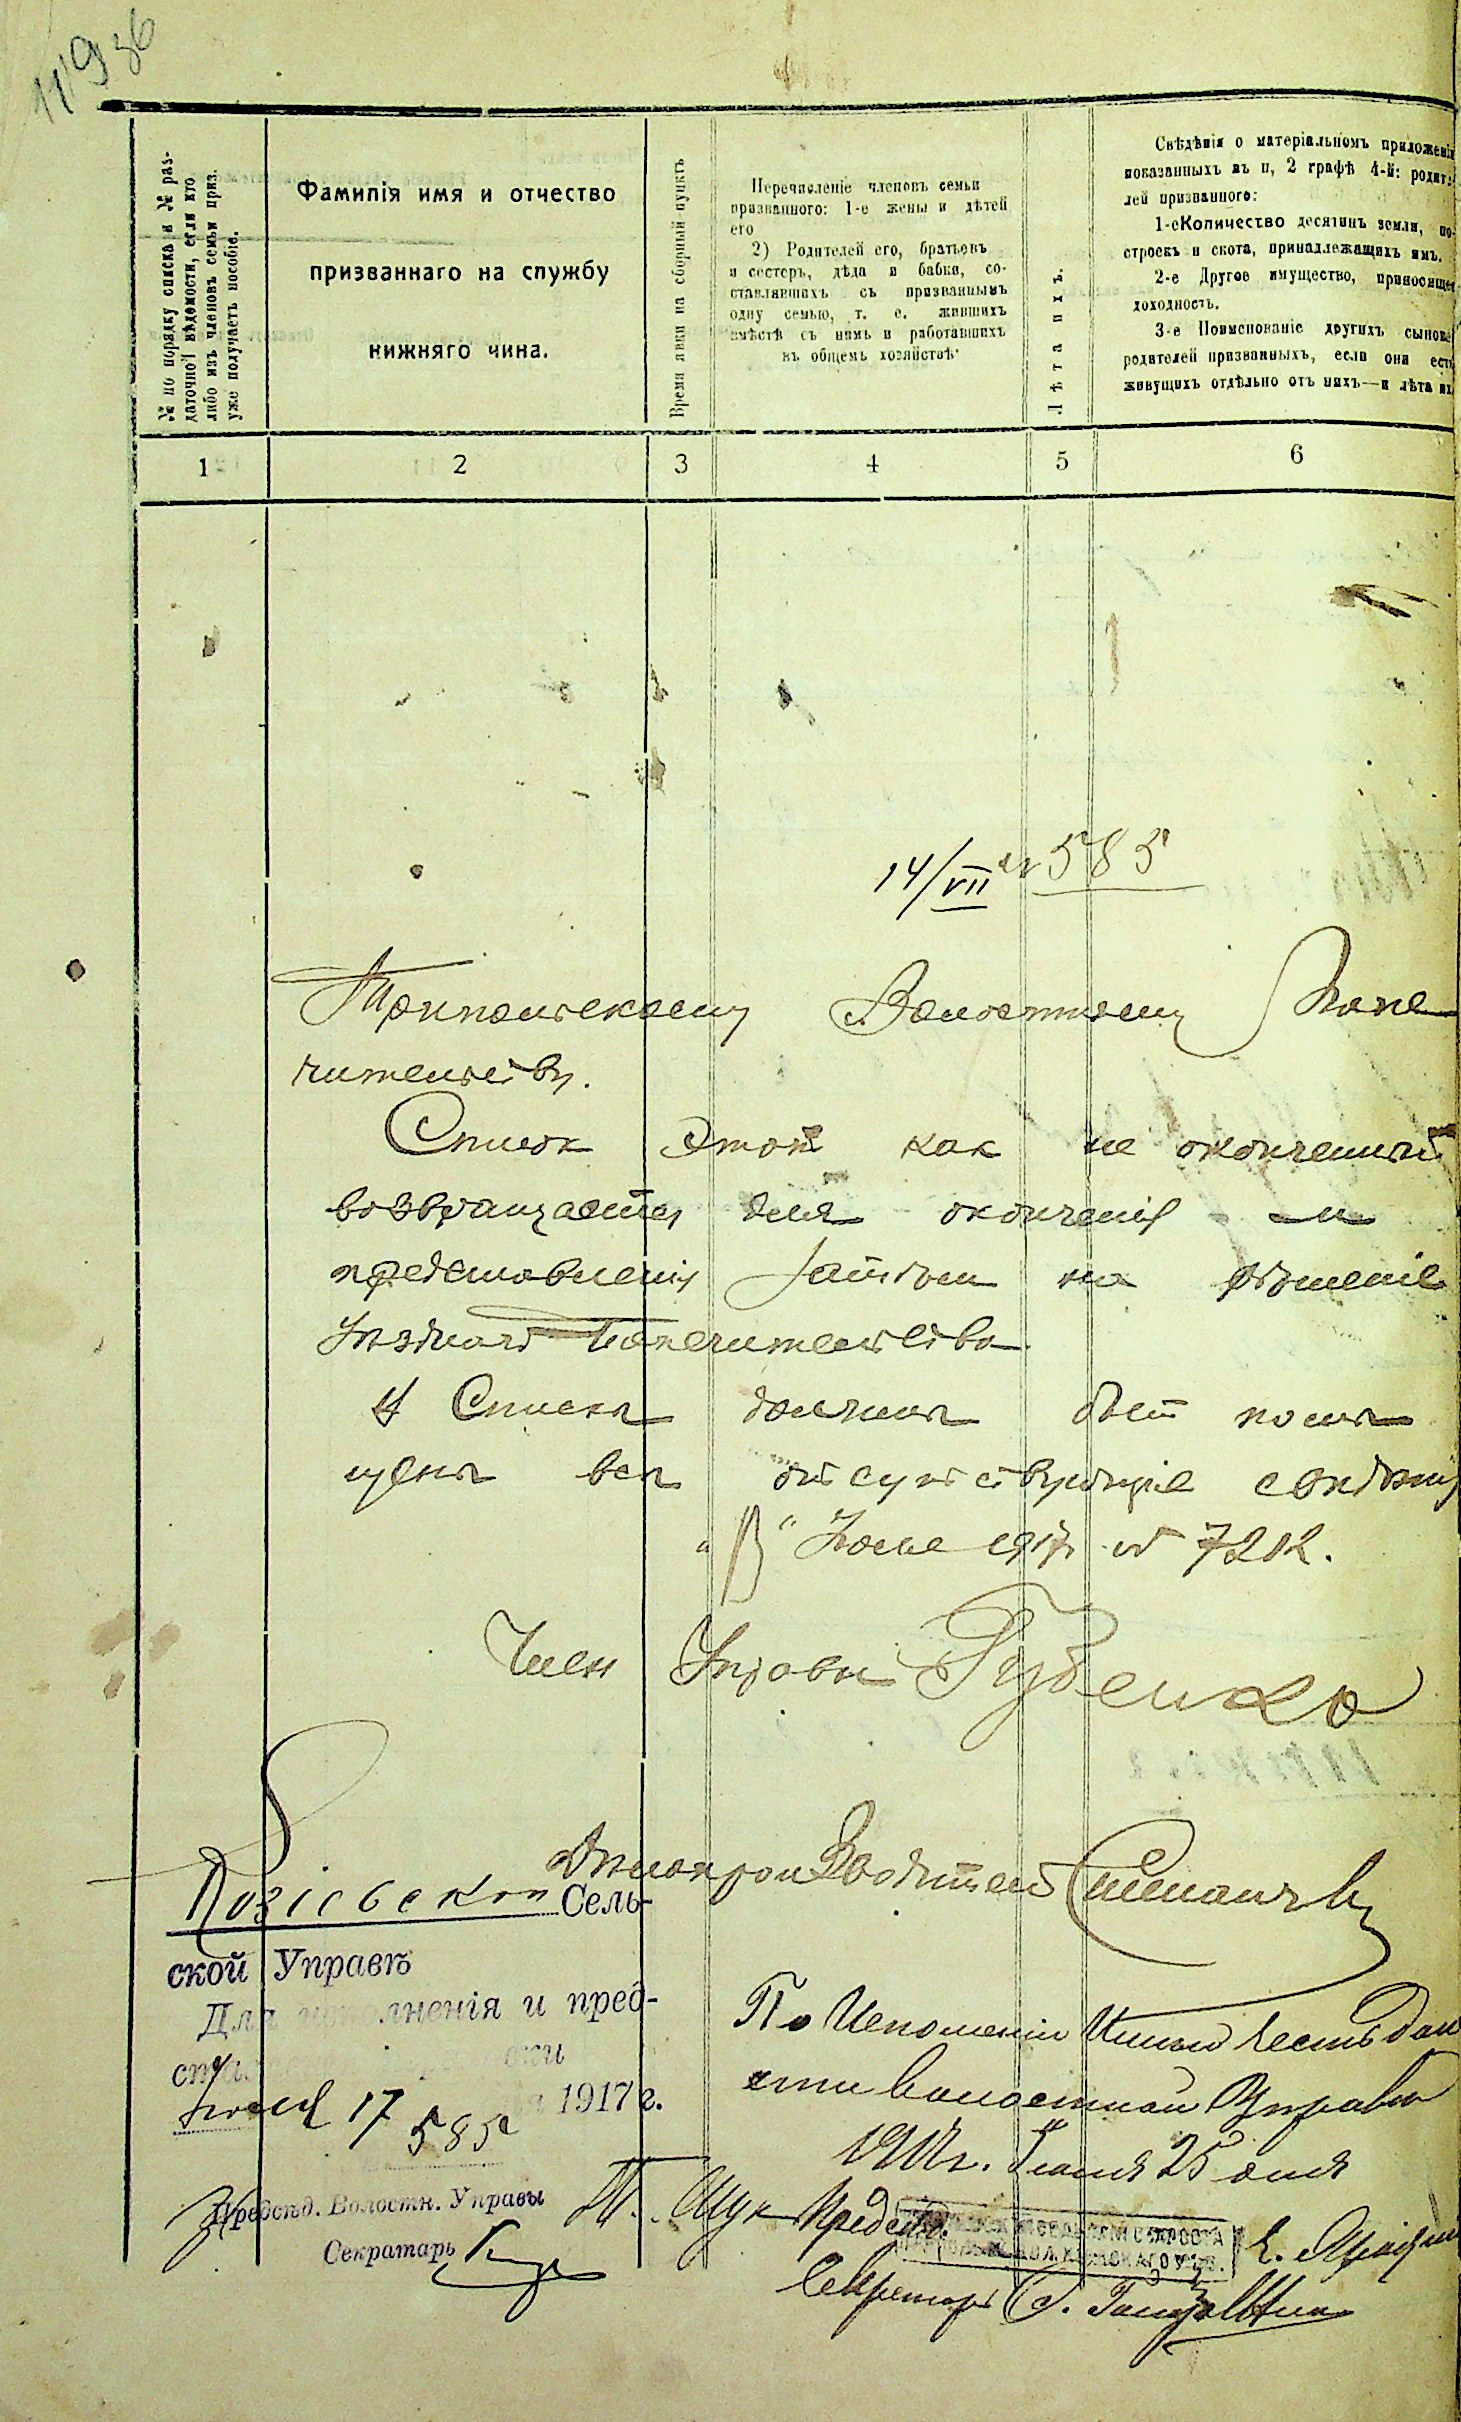 № по порядку списка и № раз-
даточной вѣдомости, если кто
либо изъ членовъ семьи приз.
уже получаетъ пособіе.
Фамилія имя и отчество
призваннаго на службу
нижняго чина.
Время явки на сборный пунктъ
Перечисленіе членовъ семьи
призваннаго: 1-е жены и дѣтей
его
2) Родителей его, братьевъ
и сестеръ, дѣда и бабки, со-
ставлявшихъ съ призваннымъ
одну семью, т. е. жившихъ
вмѣстѣ съ нимъ и работавшихъ
въ общемъ хозяйствѣ
Лѣта ихъ.
Свѣдѣнія о матеріальномъ приложеніи
показанныхъ въ п, 2 графѣ 4-й: родите-
лей призваннаго:
1-е Количество десятинъ земли, по-
строекъ и скота, принадлежащихъ имъ.
2-е Другое имущество, приносящее
доходность.
3-е Поименованіе другихъ сыновей
родителей призванныхъ, если они есть
живущихъ отдѣльно отъ нихъ—и лѣта их
1 2 3 4 5 6
14/VII № 585
Трипольскому Волостному Попе
чительству.
Список этот как не оконченный
возвращается для окончанія и
представленія затѣм на рѣшеніе
Уѣзднаго Попечительства
В Списка должны быт помѣ
щены всѣ отсутствующіе свѣдѣнія
Іюля 1917 № 7282.
Член Управы Руденко
Дѣлопроизводитель
Сель-
ской Управѣ
Для исполненія и пред-
Іюля 17 1917 г.
585
Предсѣд. Волостн. Управы
Секретарь
По Исполненіи Имѣю честь дон
ести Волостной Управѣ
1917 г. Іюля 25 дня
Предсѣд.
Секретарь